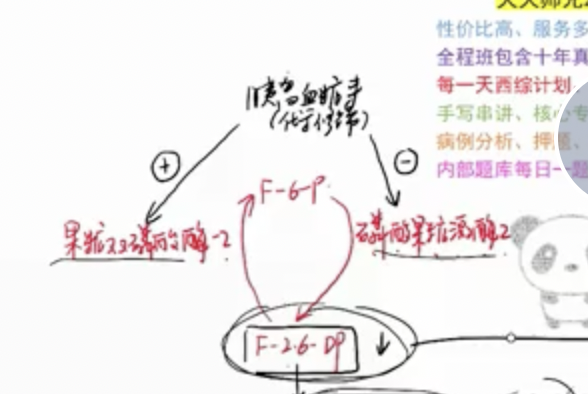 性价比高、服务多
全程班包含十年真
每一天西综计划
手写串讲、核心专
病例分析、押题、
内部题库每日一题
胰高血糖素
(化学修饰)
+
-
F-6-P
果糖双磷酸酶-2
磷酸果糖激酶2
F-2.6-DP ↓